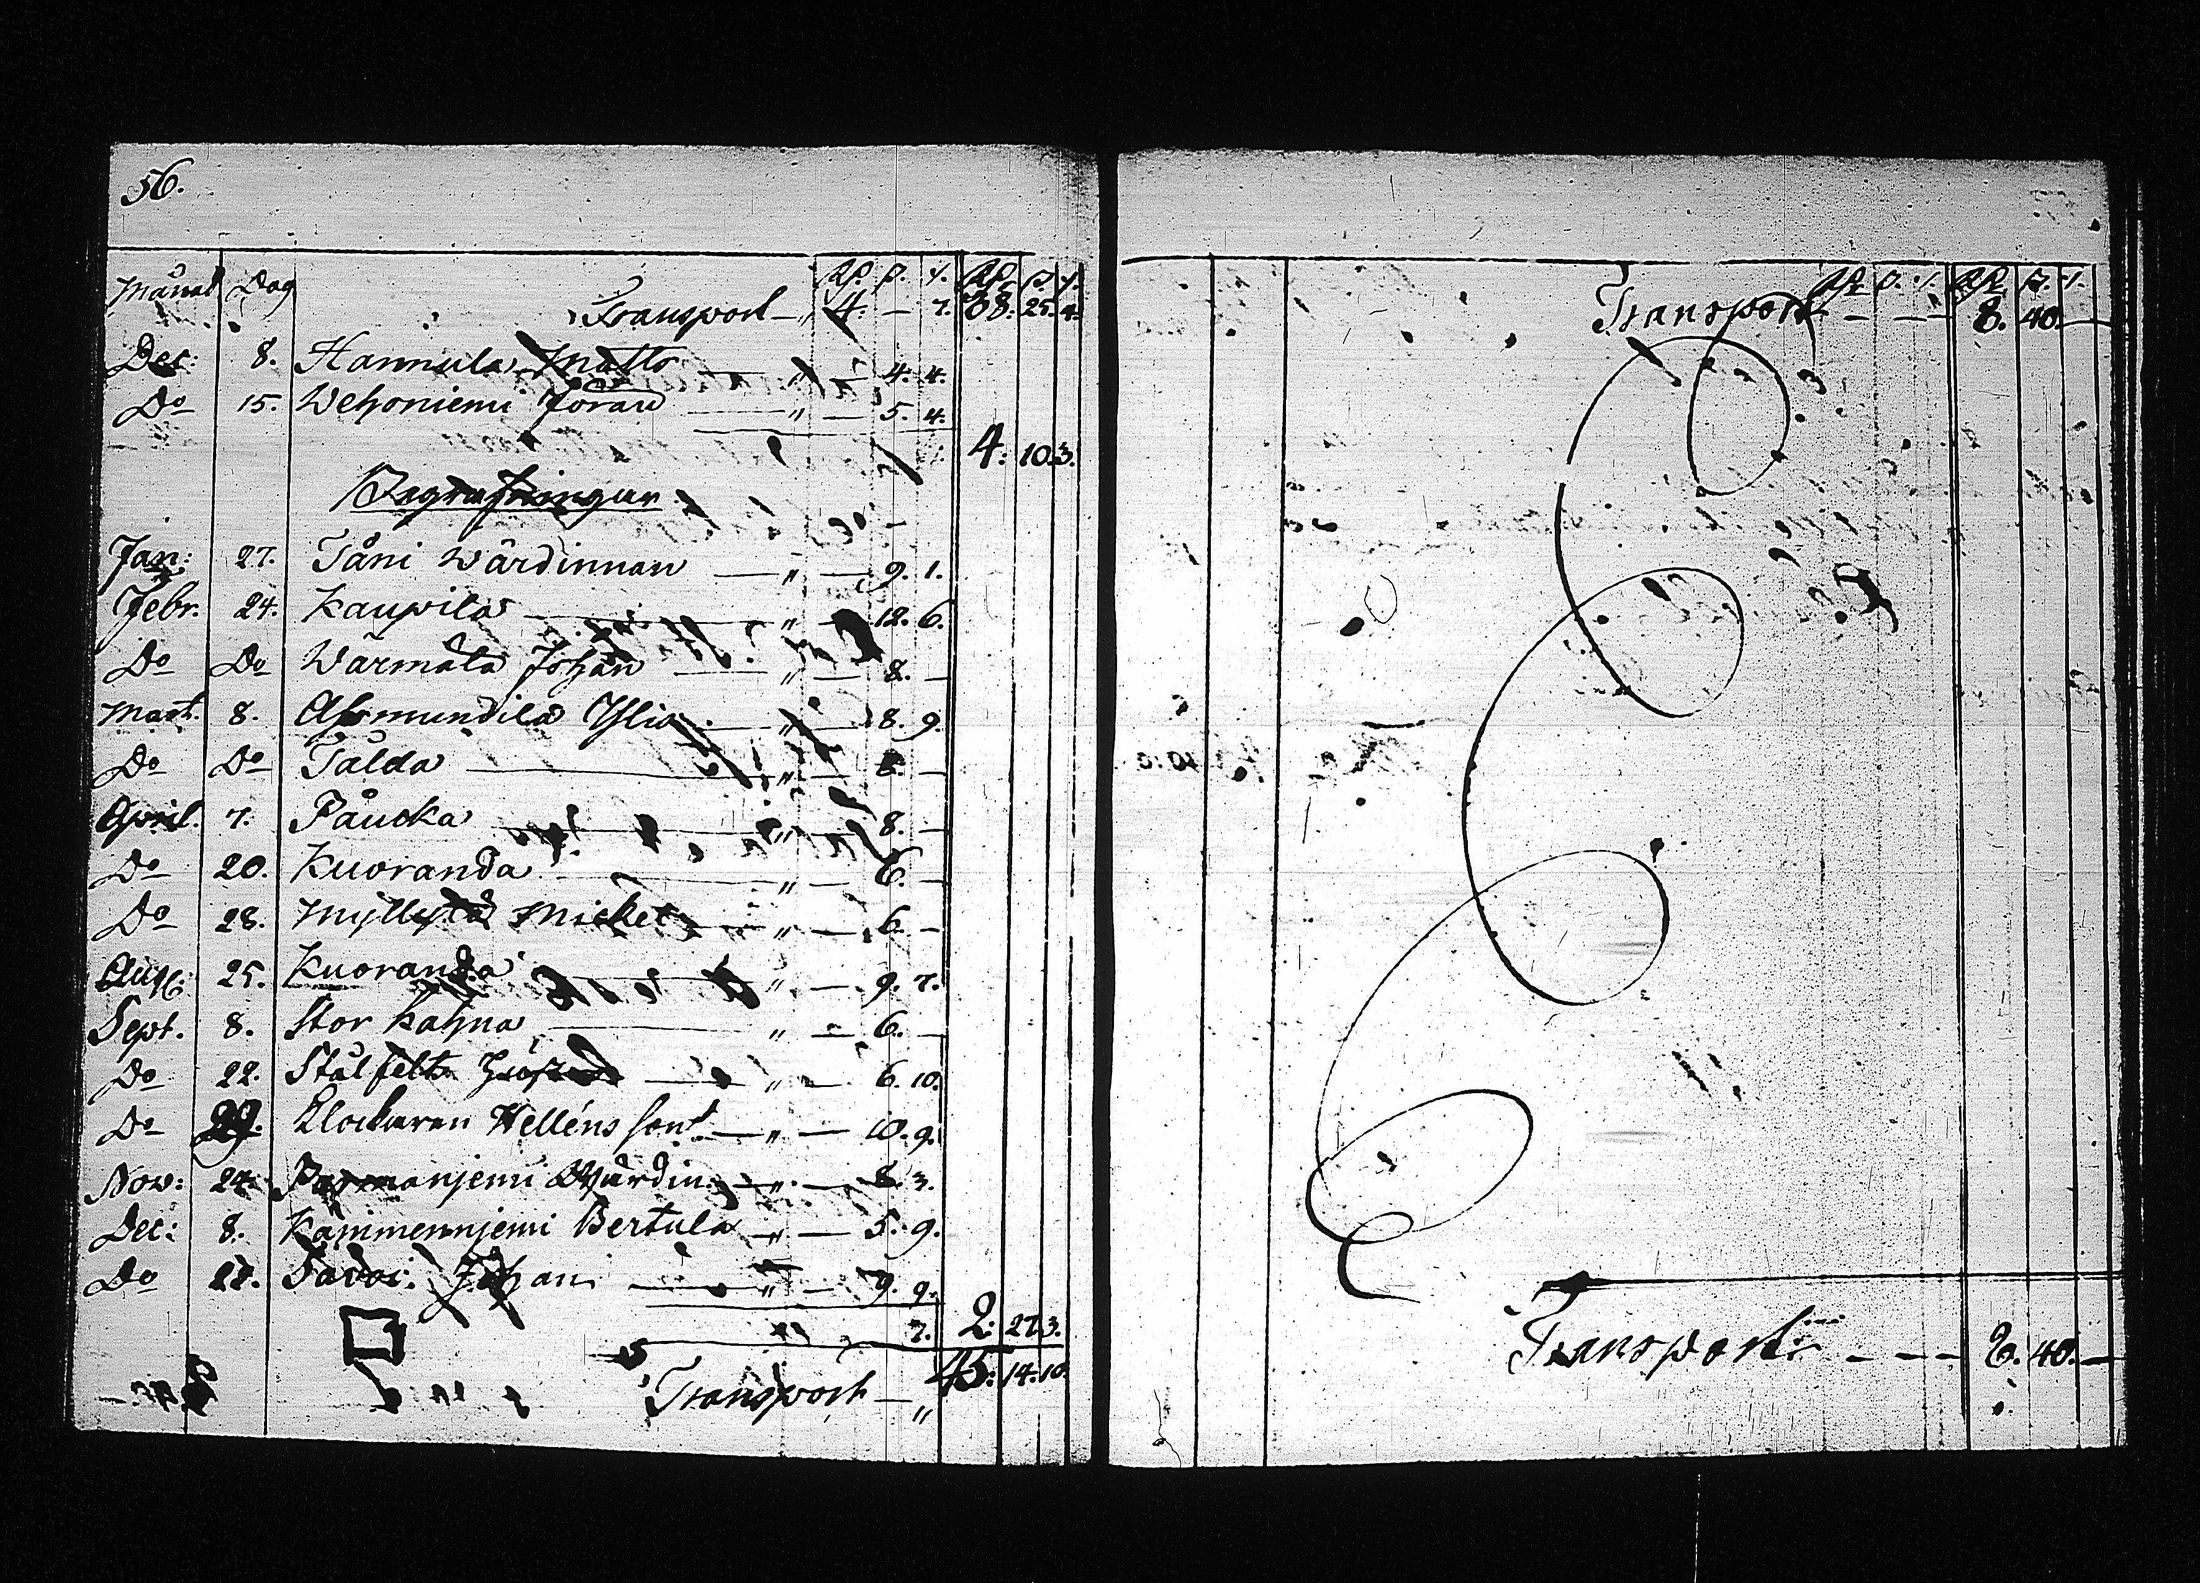 56.
Månad Dag Rp. p. 1. Rp. p. 1.
Transport — „ 4. — 7. 38. 25. 4.
Dec: 8. Hannula Matts — „ — 4. 4.
Do 15. Wehoniemi Jöran — „ — 5. 4.
4. 10. 3.
Begrafningar
Jan: 27. Tåni Wärdinnan — „ — 9. 1.
Febr. 24. Kaupila — „ — 12. 6.
Do Do Wärmälä Johan — „ — 8. —
Mart. 8. Assmundila — „ — 8. 9.
Do Do Talda — „ — 8. —
April. 7. Påucka — „ — 8. —
Do 20. Kuoranda — „ — 6. —
Do 28. Myllylä Mickel — „ — 6. —
Aug: 25. Kuoranda — „ — 9. 7.
Sept. 8. Stor Kahna — „ — 6. —
Do 22. Stålfelts — „ — 6. 10.
Do 29. Klockaren Helléns son — „ — 10. 9.
Nov: 24. Parmanjemi Wärdin — „ — 8. 3.
Dec: 8. Kammennjemi Bertula — „ — 5. 9.
Do Johan — „ — 9. 9.
7. 2. 27. 3.
Transport — „ 45. 14. 10.
Rp. p. 1. Rp. p. 1.
Transport — — — 8. 40. —
Transport — — — 8. 40. —